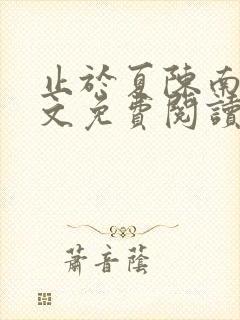 止於夏陳南
文免費閱讀
蕭音蔭